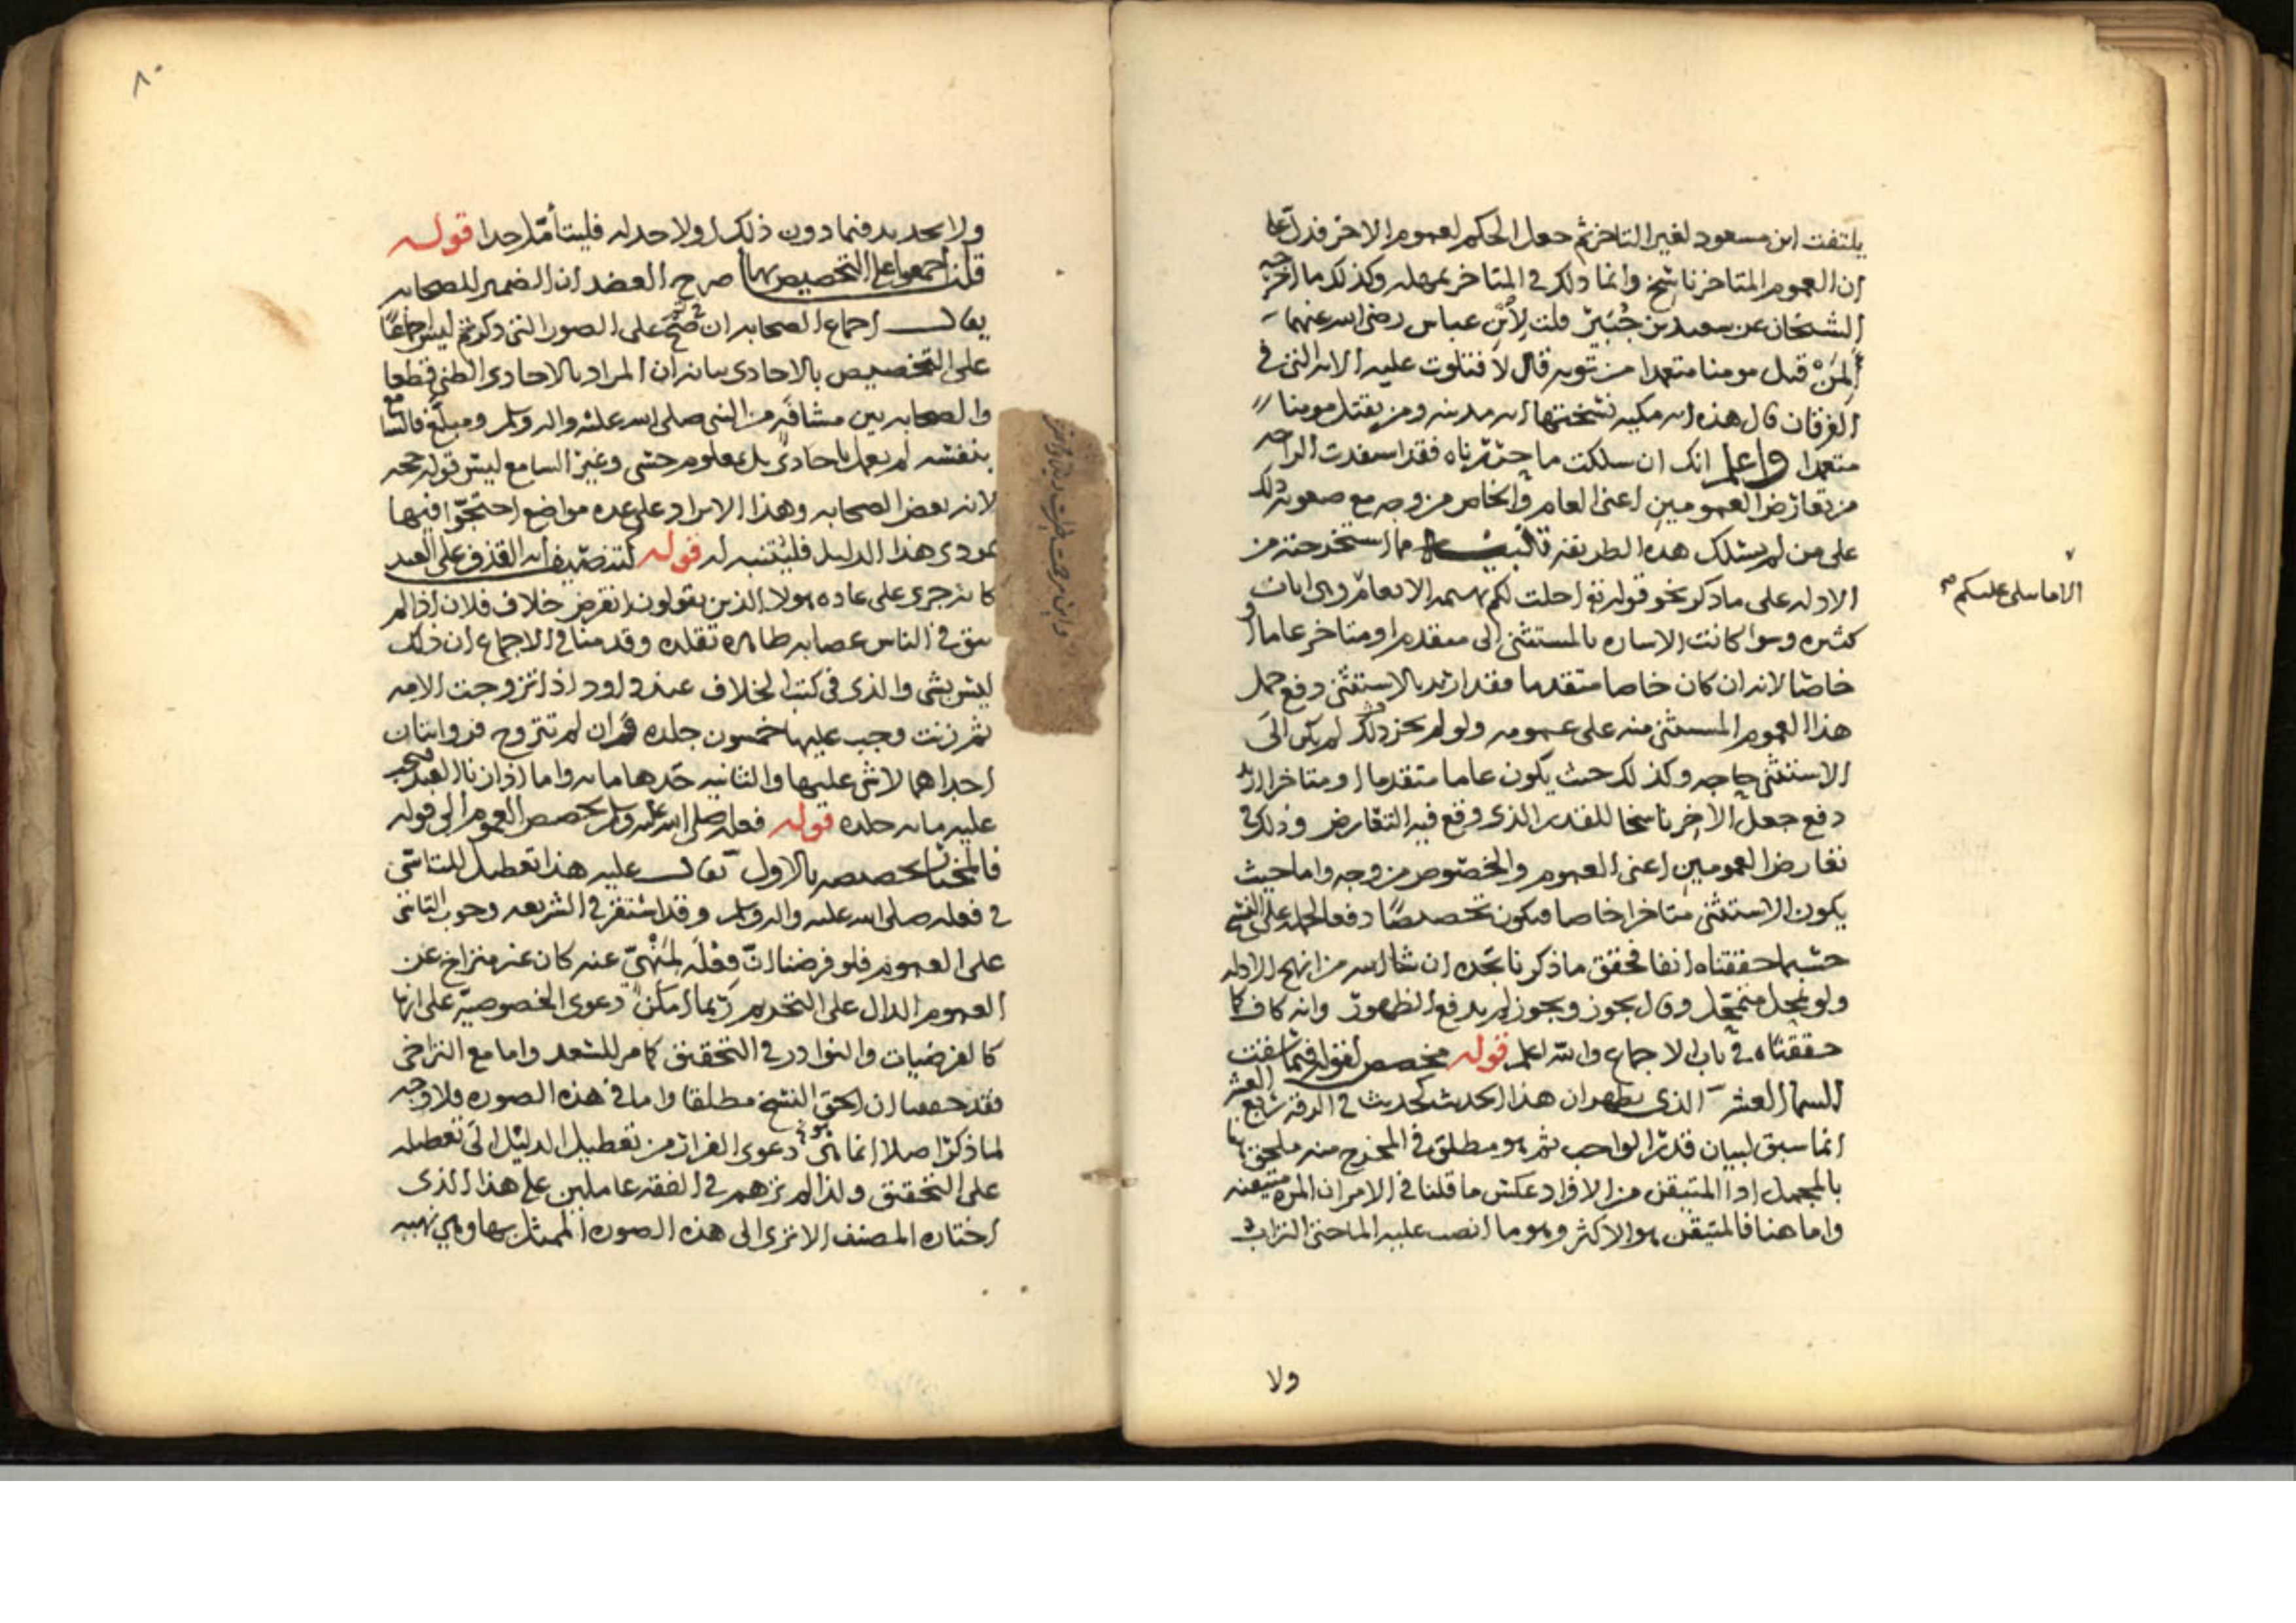 يلتفت ابن مسعود لغير التاخر ثم جعل الحكم لعموم الاخر فدل على
ان العموم المتاخر ناسخ وانما ذلك في المتاخر بمهله وكذلك ما اخرجه
الشيخان عن سعيد بن جبير قلت لابن عباس رضي الله عنهما
المن قتل مومنا متعمدا من توبه قال لا فتلوت عليه الايه التي في
الفرقان قال هذه ايه مكيه نسختها ايه مدنيه ومن يقتل مومنا
متعمدا واعلم انك ان سلكت ما حررناه فقد استفدت الراحه
من تعارض العمومين اعني العام والخاص من وجه مع صعوبه ذلك
على من لم يسلك هذه الطريقه مما استخرجته من
الادله على ما ذكر نحو قوله تع احلت لكم بهيمه الانعام وفي ايات
الا ما يتلى عليكم صح
كثيره وسوا كانت الاشاره بالمستثنى الى متقدم او متاخر عاما او
خاصا لانه ان كان خاصا متقدما فقد اريد بالاستثنى دفع حمل
هذا العموم المستثنى منه على عمومه ولو لم يجز ذلك لم يكن الى
الاستثنى حاجه وكذلك حيث يكون عاما متقدما او متاخرا اريد
دفع جعل الاخر ناسخا للقدر الذي وقع فيه التعارض وذلك في
تعارض العمومين اعني العموم والخصوص من وجه واما حيث
يكون الاستثنى متاخرا خاصا فيكون تخصيصا دفعا لحمله على النسخ
حسبما حققناه انفا فحقق ما ذكرنا تجده ان شا الله من انهج الادله
ولو تمحل متمحل وقال يجوز ويجوز لم يدفع الظهور وانه كاف كما
حققناه في باب الاجماع والله اعلم قوله مخصص لقوله فيما سقت
السما العشر الذي يظهر ان هذا الحديث كحديث في الرقه ربع العشر
انما سبق لبيان قدر الواجب ثم هو مطلق في المخرج منه ملحق
بالمجمل اذ المتيقن من الافراد عكس ما قلنا في الامر ان المره متيقنه
واما هنا فالمتيقن هو الاكثر وهو ما انصب عليه الماحتى التراب
ولا
٨٠
ولا تحديد فيما دون ذلك اولا حد له فليتامل جدا قوله
قلنا اجمعوا على التخصيص بها صرح العضد ان الضمير للصحابه
يقال اجماع الصحابه ان صح على الصور التي ذكرتم ليس اجماعا
على التخصيص بالاحادي بيانه ان المراد بالاحادي الظني قطعا
والصحابه بين مشافه من النبي صلى الله عليه واله وسلم ومبلغ فالسامع
بنفسه لم يعمل باحادي بل بمعلوم حسي وغير السامع ليس قوله حجه
لانه بعض الصحابه وهذا الايراد على عده مواضع احتجوا فيها
بمودى هذا الدليل فليتنبه له قوله لتنصيف ايه القذف على العبد
كانه جرى على عاده هولا الذين يقولون انقرض خلاف فلان اذا لم
يبق في الناس عصابه ظاهره تقلده وقدمنا في الاجماع ان ذلك
ليس بشي والذي في كتب الخلاف عن داود اذا تزوجت الامه
ثم زنت وجب عليها خمسون جلده وان لم تتزوج فروايتان
احداهما لا شي عليها والثانيه حدها مايه واما اذا زنا العبد فيجب
عليه مايه جلده قوله فعله صلى الله عليه وسلم يخصص العموم الى قوله
فالمختار تخصيصه بالاول يقال عليه هذا تعطيل للتاسي
في فعله صلى الله عليه واله وسلم وقد استقر في الشريعه وجوب التاسي
على العموم فلو فرضنا ان فعله لمنهي عنه كان غير متراخ عن
العموم الدال على التحريم ربما امكن دعوى الخصوصيه على انها
كالفرضيات والنوادر في التحقيق كما مر للسعد واما مع التراخي
فقد حققنا ان الحق النسخ مطلقا واما في هذه الصوره فلا وجه
لما ذكر اصلا انما هو دعوى الفرار من تعطيل الدليل الى تعطيله
على التحقيق ولذا لم ترهم في الفقه عاملين على هذا الذي
اختاره المصنف الا ترى الى هذه الصوره الممثل بها وهي نهيه